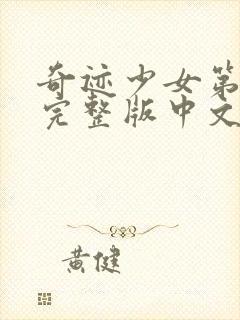 奇迹少女第
完整版中文
黄健